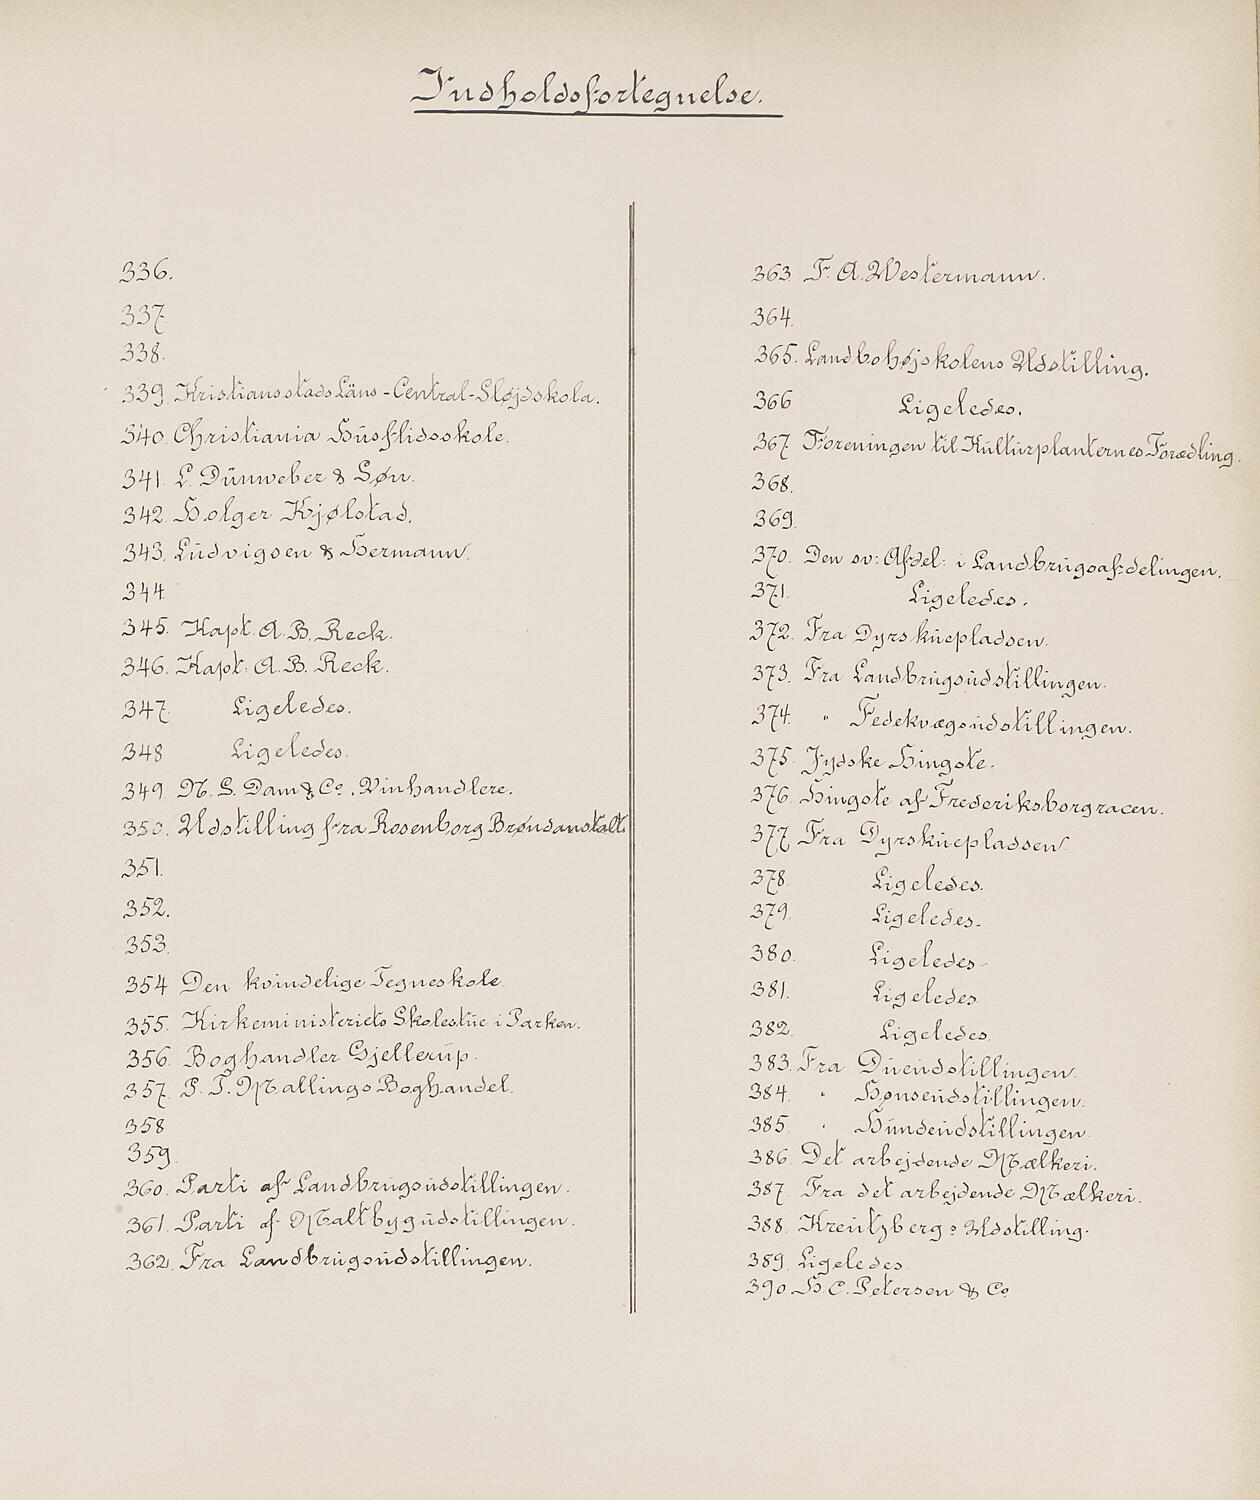 Indholdsfortegnelse.
336.
337.
338.
339. Kristiansstads Läns-Central-Sløjdskola.
340. Christiania Husflidsskole.
341. L. Dünweber & Søn.
342. Holger Kjølstad.
343. Ludvigsen & Hermann.
344
345. Kapt. A. B. Reck.
346. Kapt. A. B. Reck.
347. Ligeledes.
348 Ligeledes.
349. N. S. Dam & Co., Vinhandlere.
350. Udstilling fra Rosenborg Brøndanstalt.
351.
352.
353.
354 Den kvindelige Tegneskole.
355. Kirkeministeriets Skolestue i Parken.
356. Boghandler Gjellerup.
357. P. T. Mallings Boghandel.
358
359.
360. Parti af Landbrugsudstillingen.
361. Parti af Maltbygudstillingen.
362. Fra Landbrugsudstillingen.
363. F. A. Westermann.
364.
365. Landbohøjskolens Udstilling.
366 Ligeledes.
367. Foreningen til Kulturplanternes Forædling.
368.
369.
370. Den sv: Afdel: i Landbrugsafdelingen.
371. Ligeledes.
372. Fra Dyrskuepladsen.
373. Fra Landbrugsudstillingen.
374. " Fedekvægsudstillingen.
375. Jydske Hingste.
376. Hingste af Frederiksborgracen.
377. Fra Dyrskuepladsen.
378. Ligeledes.
379. Ligeledes.
380. Ligeledes.
381. Ligeledes.
382. Ligeledes.
383. Fra Dueudstillingen.
384. " Hønseudstillingen.
385. " Hundeudstillingen.
386. Det arbejdende Mælkeri.
387. Fra det arbejdende Mælkeri.
388. Kreutzbergs Udstilling.
389. Ligeledes.
390. H. C. Petersen & Co